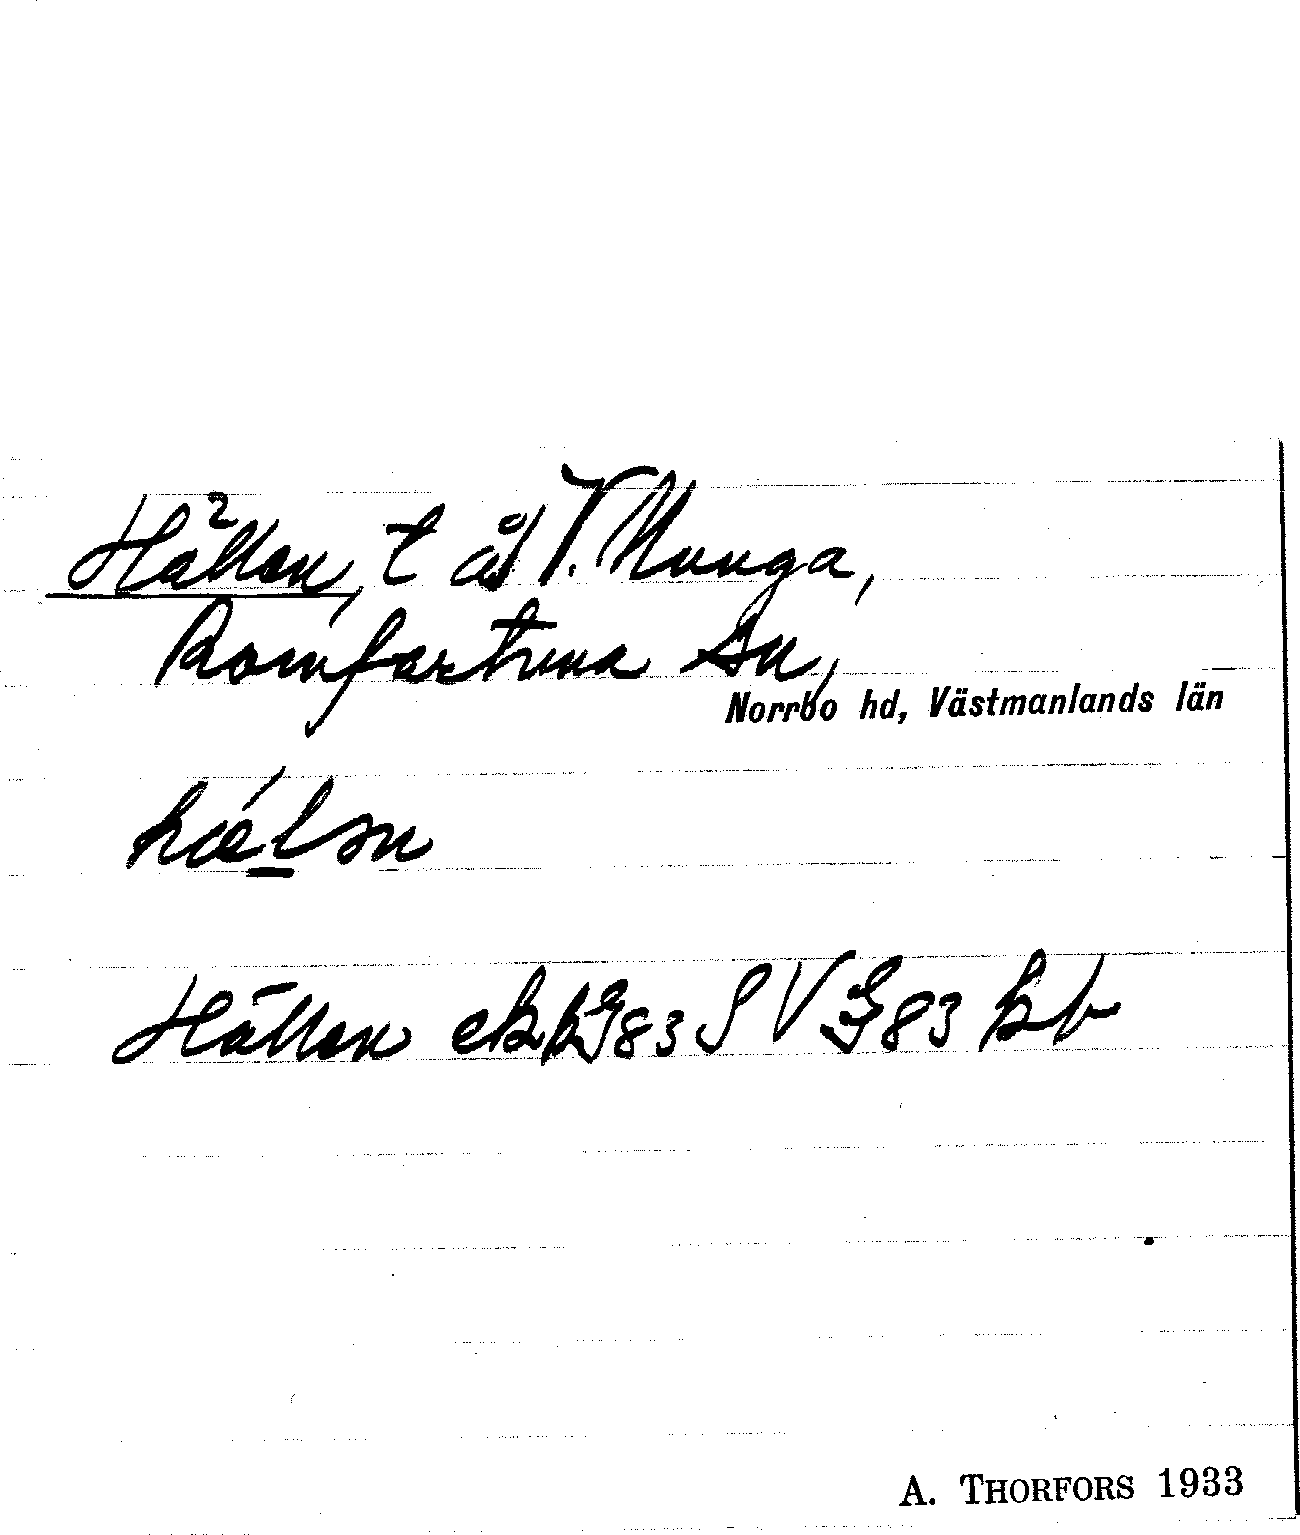 Hällen, t å V. Munga,
Romfartuna sn,
Norrbo hd, Västmanlands län
Hällen ekbl 83 S V G 83 bb
A. THORFORS 1933